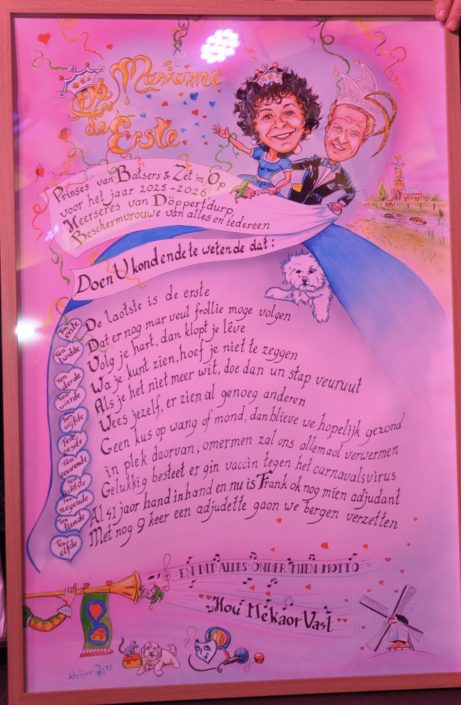 Marianne
de Erste
Prinses van Batsers & Zet'm Op
voor het jaar 2025-2026
Heerseres van Döppertdurp,
Beschermvrouwe van alles en iedereen
Doen U kond ende te wetende dat:
Ten eerste De laotste is de erste
Ten twidde Dat er nog mar veul frollie moge volgen
Ten derde Volg je hart, dan klopt je lêve
Ten vierde Wa je kunt zien, hoef je niet te zeggen
Ten vijfde Als je het niet meer wit, doe dan un stap veuruut
Ten zesde Wees jezelf, er zien al genoeg anderen
Ten zeuvende Geen kus op wang of mond, dan blieve we hopelijk gezond
in plek daorvan, omermen zal ons allemaol verwermen
Ten achtste Gelukkig besteet er gin vaccin tegen het carnavalsvirus
Ten negende Al 41 jaor hand in hand en nu is Frank ok nog mien adjudant
Ten tiende Met nog 9 keer een adjudette gaon we bergen verzetten
Ten elfde
EN DIT ALLES ONDER MIEN MOTTO
Hou Mekaor Vast
Atelier